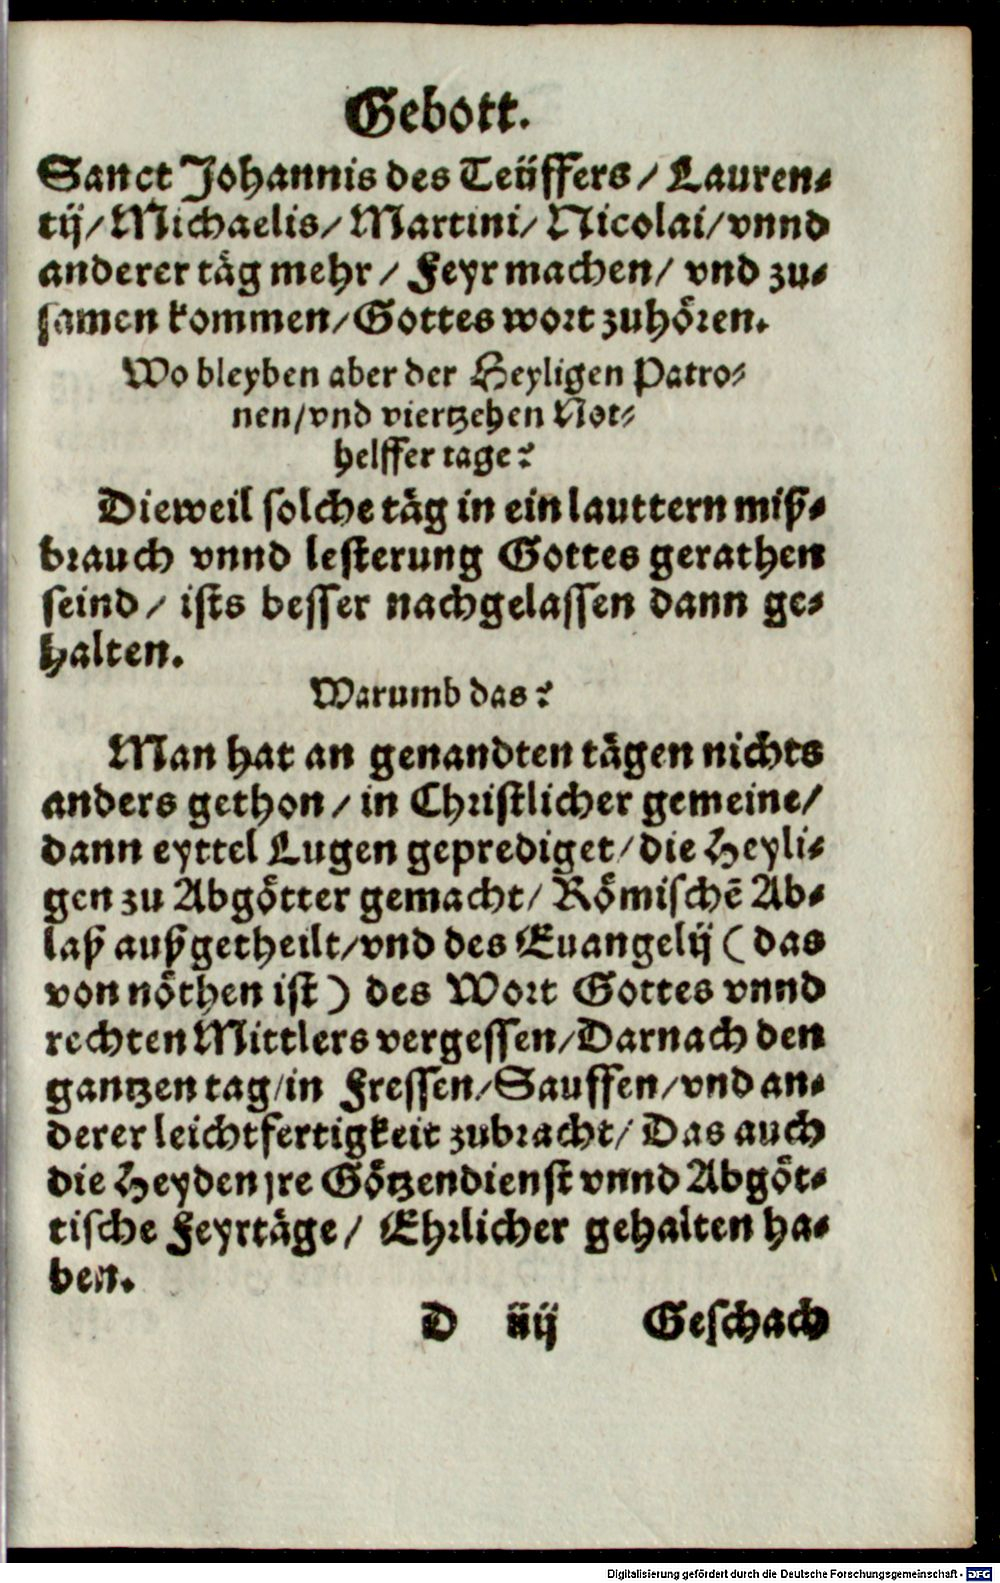 Gebott.
Sanct Johannis des Teüffers / Lauren⸗
tij / Michaelis / Martini / Nicolai / vnnd
anderer täg mehr / Feyr machen / vnd zu⸗
samen kommen / Gottes wort zuhören.
Wo bleyben aber der Heyligen Patro⸗
nen / vnd viertzehen Not⸗
helffer tage?
Dieweil solche täg in ein lauttern miß⸗
brauch vnnd lesterung Gottes gerathen
seind / ists besser nachgelassen dann ge⸗
halten.
Warumb das?
Man hat an genandten tägen nichts
anders gethon / in Christlicher gemeine /
dann eyttel Lugen geprediget / die Heyli⸗
gen zu Abgötter gemacht / Römischē Ab⸗
laß außgetheilt / vnd des Euangelij ( das
von nöthen ist ) des Wort Gottes vnnd
rechten Mittlers vergessen / Darnach den
gantzen tag / in Fressen / Sauffen / vnd an⸗
derer leichtfertigkeit zubracht / Das auch
die Heyden jre Götzendienst vnnd Abgöt⸗
tische Feyrtäge / Ehrlicher gehalten ha⸗
ben.
D iiij Geschach
Digitalisierung gefördert durch die Deutsche Forschungsgemeinschaft - DFG